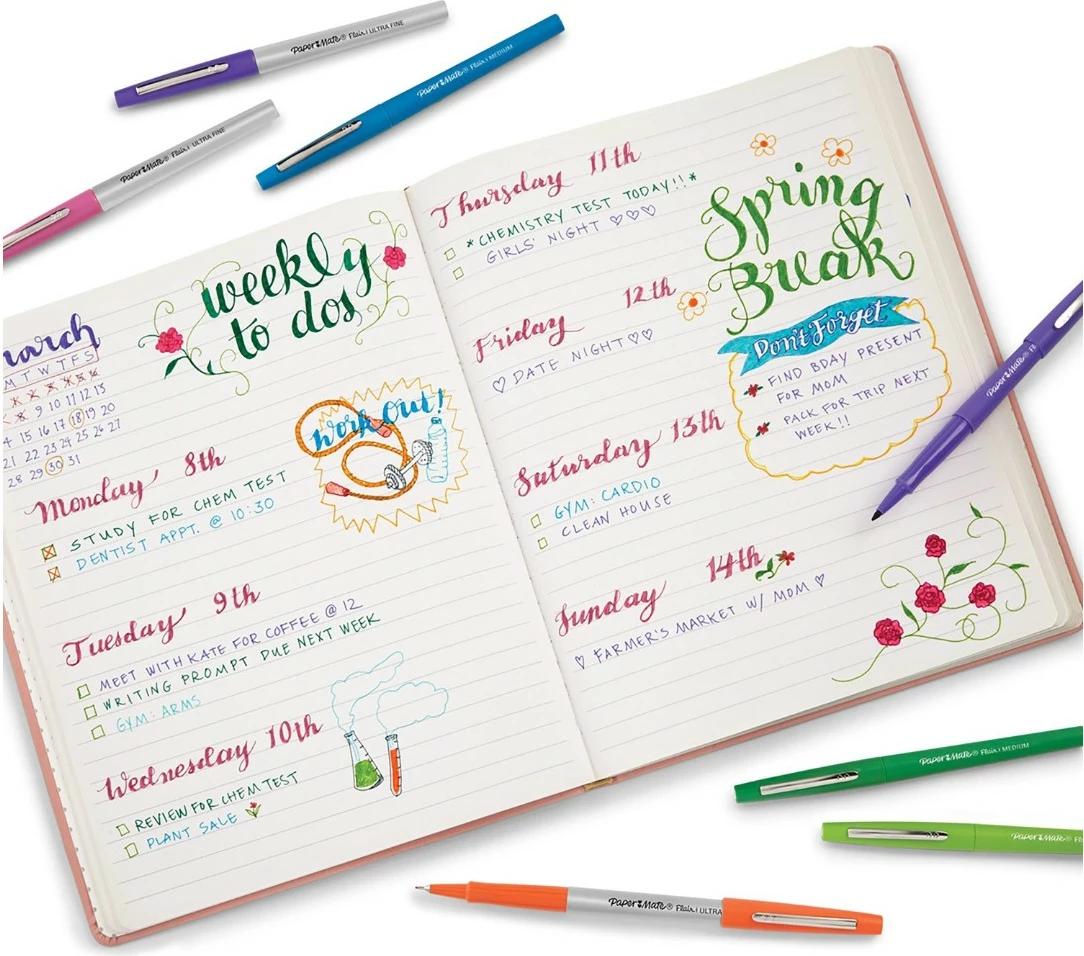 Paper Mate® Flair. | ULTRA FINE
Paper Mate® Flair. | MEDIUM
Paper Mate® Flair. | ULTRA FINE
weekly
to dos
arch
M T W T F S
8 9 10 11 12 13
4 15 16 17 18 19 20
21 22 23 24 25 26 27
28 29 30 31
Work Out!
Monday 8th
STUDY FOR CHEM TEST
DENTIST APPT. @ 10:30
Tuesday 9th
MEET WITH KATE FOR COFFEE @ 12
WRITING PROMPT DUE NEXT WEEK
GYM: ARMS
Wednesday 10th
REVIEW FOR CHEM TEST
PLANT SALE
Thursday 11th
*CHEMISTRY TEST TODAY!!*
GIRLS' NIGHT ♡♡♡
Friday 12th
♡ DATE NIGHT ♡♡
Saturday 13th
GYM: CARDIO
CLEAN HOUSE
Sunday 14th
♡ FARMER'S MARKET W/ MOM ♡
Spring
Break
Don't Forget
FIND BDAY PRESENT
FOR MOM
PACK FOR TRIP NEXT
WEEK!!
Paper Mate®
Paper Mate® Flair. | MEDIUM
Paper Mate® Flair
Paper Mate® Flair. | ULTRA